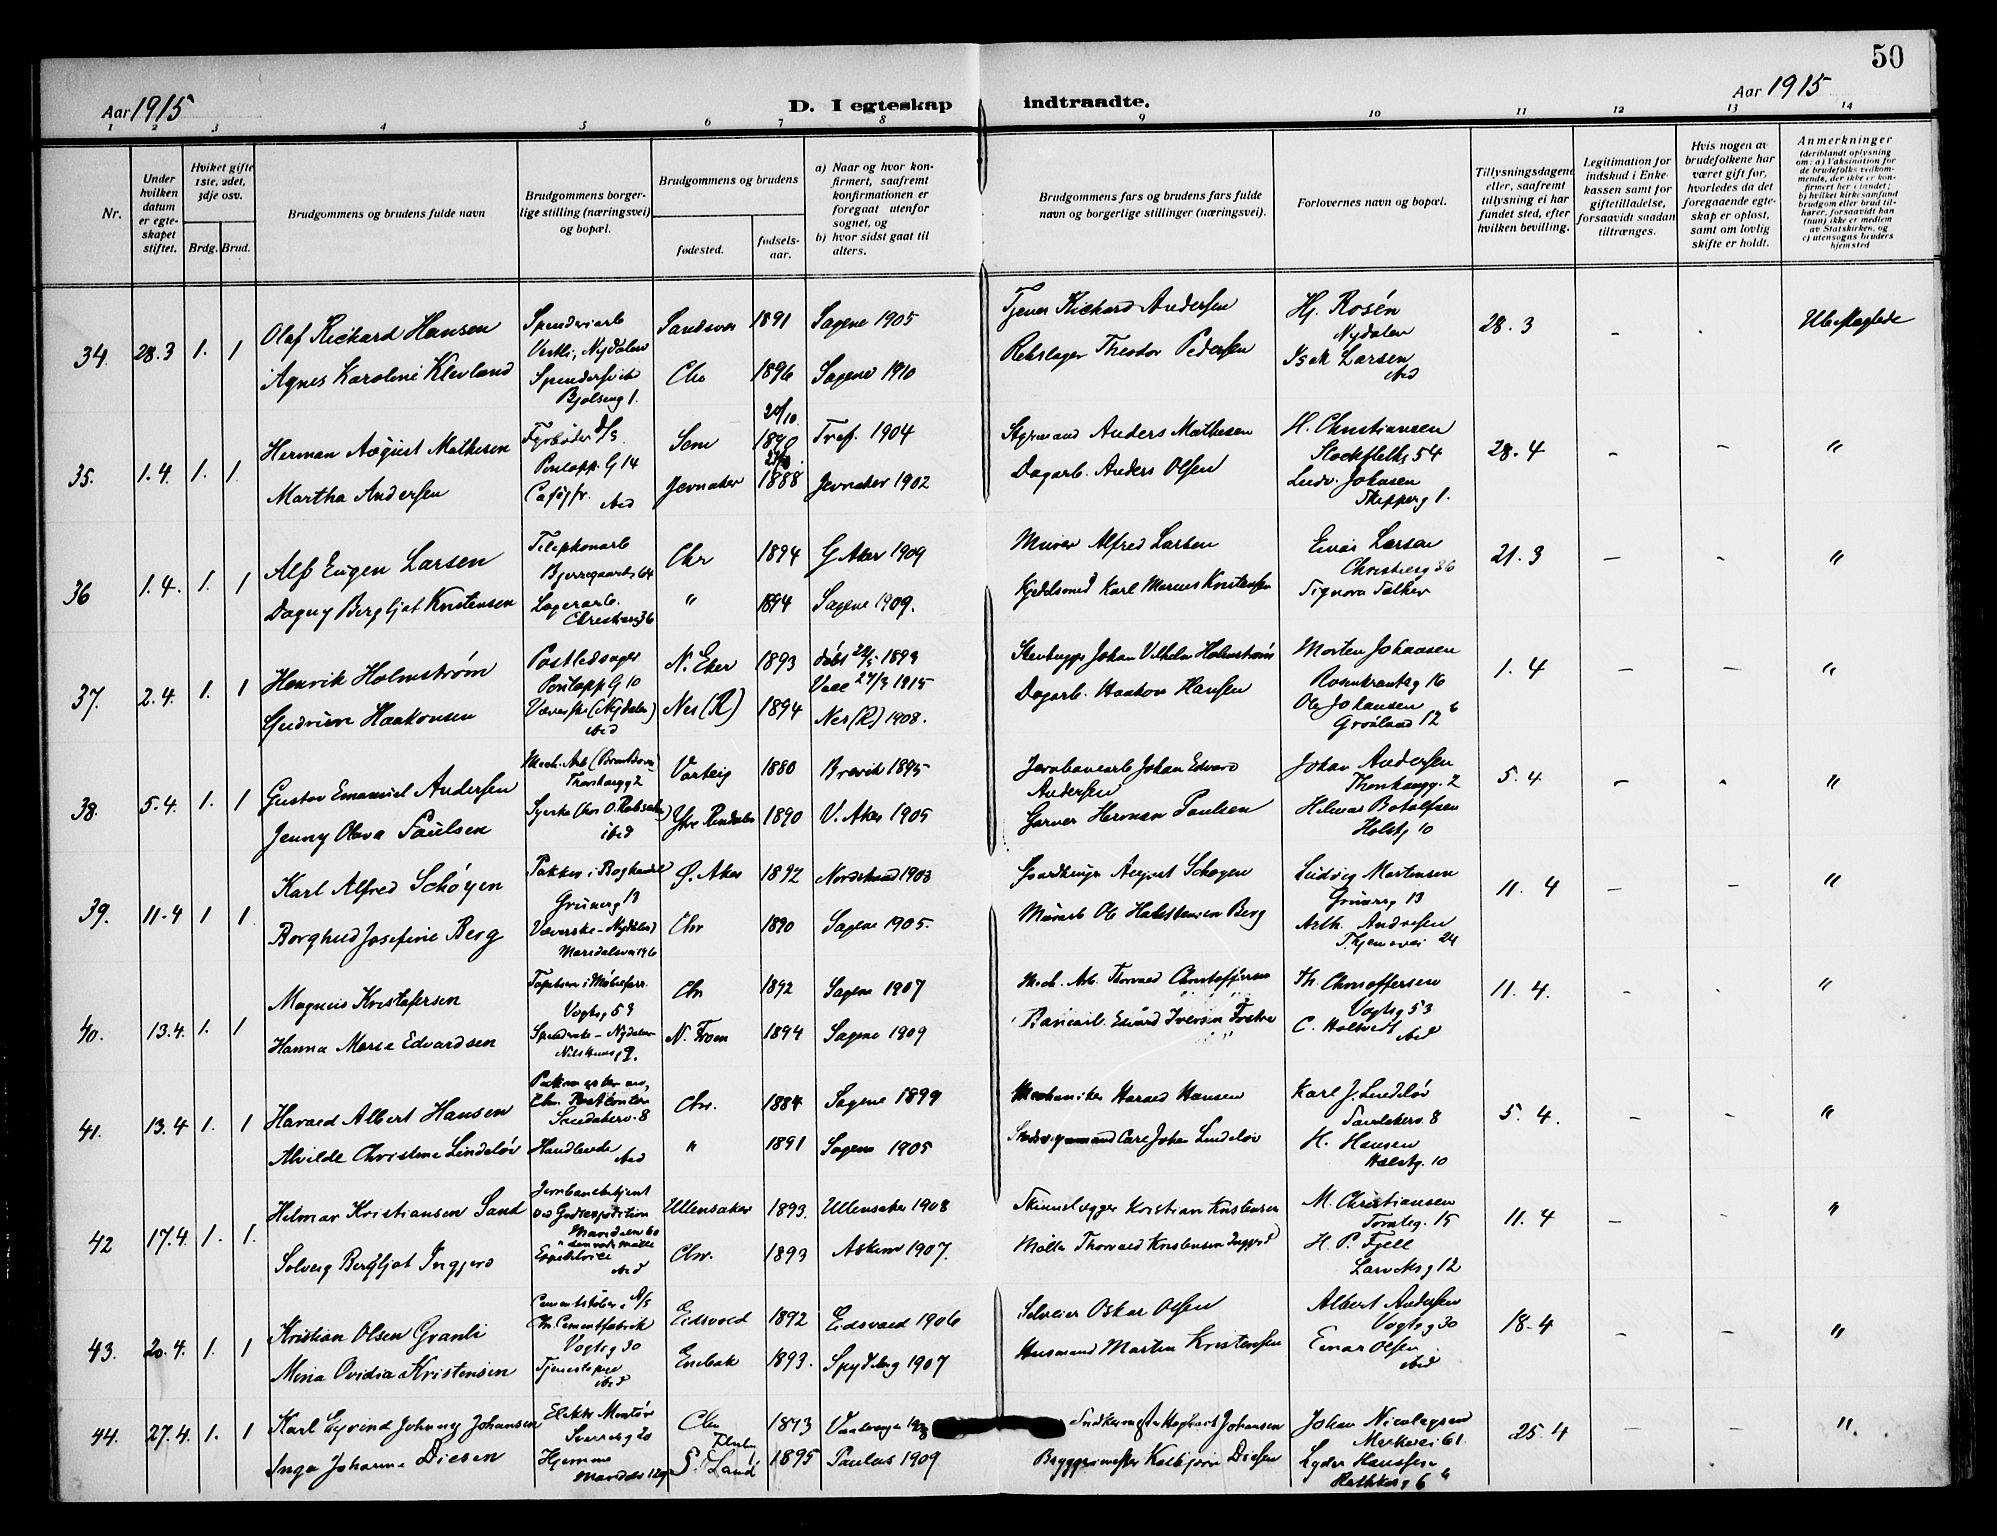 50
Aar 1915
D. I egteskap indtraadte.
Aar 1915
1 2 3 4 5 6 7 8 9 10 11 12 13 14
Nr.
Under hvilken datum er egteskapet stiftet.
Hviket gifte 1ste, 2det, 3dje osv.
Brdg. Brud.
Brudgommens og brudens fulde navn
Brudgommens borgerlige stilling (næringsvei) og bopæl.
Brudgommens og brudens
fødested.
fødselsaar.
a) Naar og hvor konfirmert, saafremt konfirmationen er foregaat utenfor sognet, og
b) hvor sidst gaat til alters.
Brudgommens fars og brudens fars fulde navn og borgerlige stillinger (næringsvei).
Forlovernes navn og bopæl.
Tillysningsdagene eller, saafremt tillysning ei har fundet sted, efter hvilken bevilling.
Legitimation for indskud i Enkekassen samt for giftetilladelse, forsaavidt saadan tiltrænges.
Hvis nogen av brudefolkene har været gift for, hvorledes da det foregaaende egteskap er opløst, samt om lovlig skifte er holdt.
Anmerkninger
(deriblandt oplysning om: a) Vaksination for de brudefolks vedkommende, der ikke er konfirmert her i landet; b) hvilket kirkesamfund brudgom eller brud tilhører, forsaavidt han (hun) ikke er medlem av Statskirken, og c) utensogns bruders hjemsted
34. 28.3 1. 1 Olaf Richard Hansen Spinderiarb Sandsvær 1891 Sagene 1905 Tjener Richard Andersen Hj. Rosén 28.3 -
Nydalen
Agnes Karoline Klevland Chr 1896 Sagene 1910 Rebslager Theodor Pedersen Isak Larsen
Bjølseng 1. ibd
35. 1.4. 1. 1 Herman August Mathesen Fyrbøder 1890 Tref. 1904 Styrmand Anders Mathesen H. Christiansen 28.4 - - "
Pontopp. G 14 Stockfleths 54
Martha Andersen ibd Jevnaker 1888 Jevnaker 1902 Dagarb. Anders Olsen Ludv. Johnsen
Skipperg 1.
36 1.4. 1. 1 Alf Eugen Larsen Telephonarb Chr 1894 G. Aker 1909 Murer Alfred Larsen Einar Larsen 21.3 - - "
Bjerregaards 64 Christiesg 36
Dagny Bergljot Kristensen Lagerarb. " 1894 Sagene 1909. Kjedelsmed Karl Marius Kristensen Signora Falker
Christiesg 36
37. 2.4. 1. 1 Henrik Holmstrøm Postledsager N. Eker 1893 døbt 1893 Stenhugger Johan Vilhelm Holmstrøm Morten Johansen 1.4 - - "
Pontopp G 10 Rosenkrantzg 16
Gudrun Haakonsen Væverske (Nydalen) Nes (R) 1894 Nes (R) 1908. Dagarb. Haakon Hansen Ole Johansen
ibd Grønland 12
38. 5.4. 1. 1 Gustav Emanuel Andersen Mech. Arb Varteig 1880 Brevik 1895 Jernbanearb Johan Edvard Andersen Johan Andersen 5.4 - - "
Thorshaugg 2 Thorshaugg. 2
Jenny Olava Paulsen Syerske ibid Ytre Rendalen 1890 V. Aker 1905 Garver Herman Paulsen Hilmar Botolfsen
Holstg 10
39. 11.4 1 1. Karl Alfred Schøyen Pakker i Boghandel Ø. Aker 1892 Nordstrand 1903 August Schøyen Ludvig Mortensen 11.4 - - "
Grünerg 13 Grünerg 13
Borghild Josefine Berg Væverske - Nydalen Chr 1890 Sagene 1905. Murarb Ole Halvstensen Berg Arth. Andresen
Maridalsvei 146 24
40. 13.4. 1. 1 Magnus Kristofersen Chr 1892 Sagene 1907 Mech. Arb. Thorvald Christoffersen Th. Christoffersen 11.4. - - "
Vogtsg 53 Vogtsg 53
Hanna Marie Edvardsen Spinderske - Nydalen N. Fron 1894 Sagene 1909 Edvard Iversen C. Holtvedt
ibd
41. 13.4 1. 1 Harald Albert Hansen Chr. Postkontor Chr. 1884 Sagene 1899 Mechaniker Harald Hansen Karl J. Lindeløv 5.4. - - "
Sandakerv. 8 Sandakerv. 8
Alvilde Christine Lindeløv ibd " 1891 Sagene 1905 Carl Johan Lindeløv H. Hansen
Holstg. 10
42 17.4. 1. 1. Hilmar Kristiansen Sand Jernbanebetjent Ullensaker 1893. Ullensaker 1908 Kristian Kristensen M. Christiansen 11.4 - - "
Maridalsv 60 Torvalsg. 15
Solveig Bergljot Ingjerd ibd Chr. 1893 Askim 1907. Møller Thorvald Kristensen Ingjerd H. P. Fjell
Larviksg 12
43. 20.4. 1. 1 Kristian Olsen Granli Cementstøber i A/S Eidsvold 1892 Eidsvold 1906 Selveier Oskar Olsen Albert Andersen 18.4 - - "
Chr. Cementfabrik Vogtsg 30
Vogtsg 30
Mina Ovidia Kristensen Tjenestepige Enebak 1893. Spydeberg 1907 Husmand Martin Kristensen Einar Olsen
ibd ibd
44. 27.4. 1. 1 Karl Eyvind Johnny Johansen Elektr. Montør Chr 1893 Vaalerengen Johansen Johan Nicolaysen 25.4 - - "
Sverresg 20 61
Inga Johanne Diesen Hjemme S. Land 1895 Paulus 1909 Bryggerimester Kolbjørn Diesen Lyder Hanssen
Maridalsv 129 Rathkesg 6